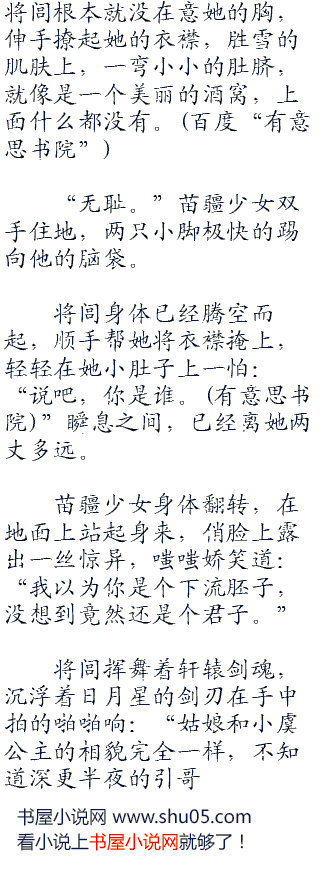 将闾根本就没在意她的胸，
伸手撩起她的衣襟，胜雪的
肌肤上，一弯小小的肚脐，
就像是一个美丽的酒窝，上
面什么都没有。(百度“有意
思书院”)
“无耻。”苗疆少女双
手住地，两只小脚极快的踢
向他的脑袋。
将闾身体已经腾空而
起，顺手帮她将衣襟掩上，
轻轻在她小肚子上一怕：
“说吧，你是谁。(有意思书
院)”瞬息之间，已经离她两
丈多远。
苗疆少女身体翻转，在
地面上站起身来，俏脸上露
出一丝惊异，嗤嗤娇笑道：
“我以为你是个下流胚子，
没想到竟然还是个君子。”
将闾挥舞着轩辕剑魂，
沉浮着日月星的剑刃在手中
拍的啪啪响：“姑娘和小虞
公主的相貌完全一样，不知
道深更半夜的引哥
书屋小说网 www.shu05.com
看小说上书屋小说网就够了！